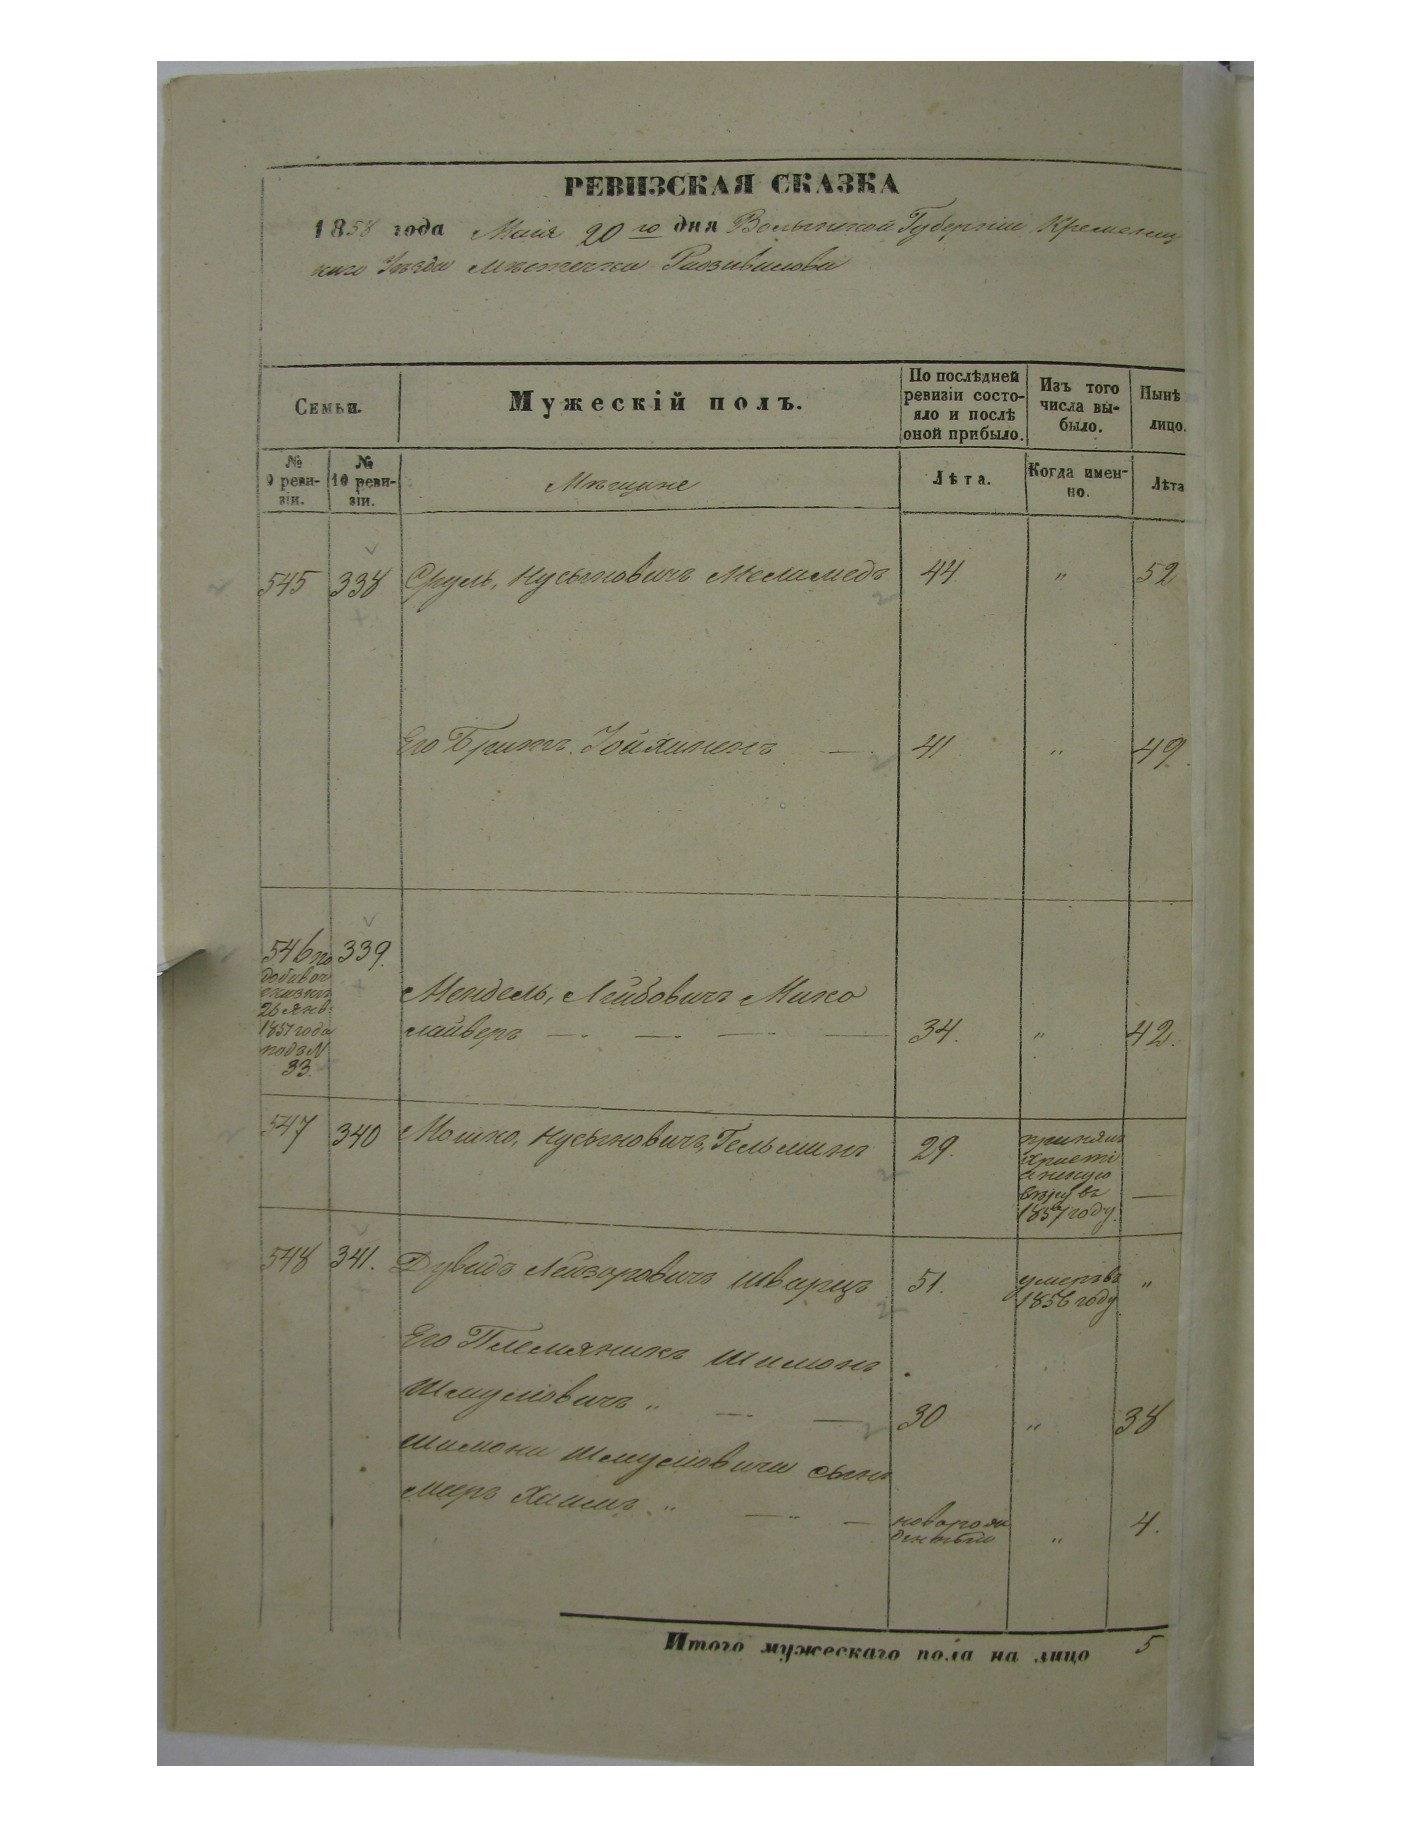 РЕВИЗСКАЯ СКАЗКА
1858 года Маія 20го дня Волынской Губерніи Кременец
каго Уѣзда Мѣстечка Радзивилова
Семьи.
Мужескій полъ.
По послѣдней
ревизіи состо-
яло и послѣ
оной прибыло.
Изъ того
числа вы-
было.
Нынѣ
лицо.
№
9 реви-
зіи.
№
10 реви-
зіи.
Мѣщане
Лѣта.
Когда имен-
но.
Лѣта
545 338 Сруль, Нусыновичъ Меламедъ 44 " 52
Его Братъ Іойхиненъ 41 " 49
546 по 339.
добавоч
сказкѣ
26 Янв.
1851 года
подъ №
33.
Мендель, Лейбовичъ Мико
лайверъ 34. " 42.
547 340 Мошко, Нусыновичъ, Гельманъ 29.
принялъ
Христі
анскую
вѣру въ
1857 году.
548 341. Дувидъ Лейзоровичъ Шварцъ 51. умеръ въ "
1856 году
Его Племяникъ Шимонъ
Шмуліовичъ " 30 " 38
Шимона Шмуліовича сынъ
Меръ Хаимъ " новорож " 4.
денный
Итого мужескаго пола на лицо 5